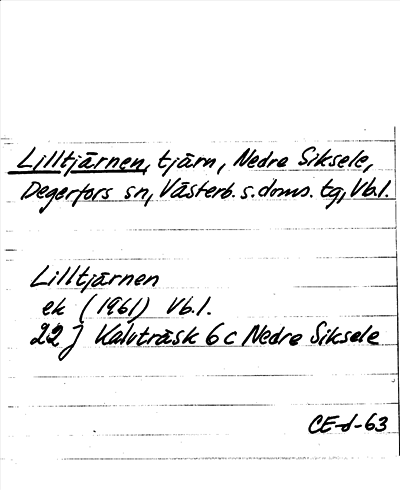 Lilltjärnen, tjärn, Nedre Siksele,
Degerfors sn, Västerb. s. doms. tg, Vb.l.
Lilltjärnen
ek (1961) Vb.l.
22 J Kalvträsk 6 c Nedre Siksele
CE-d-63